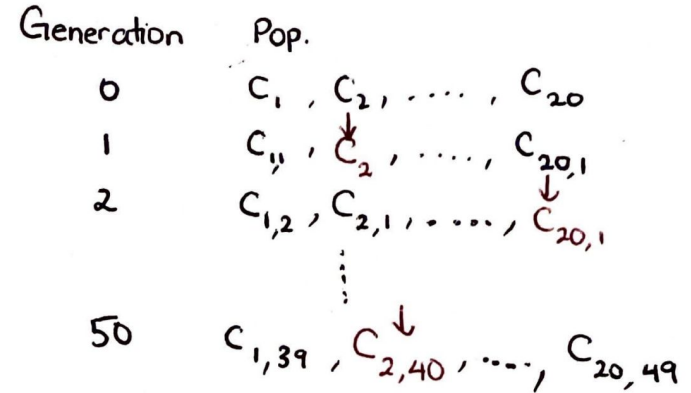 Generation Pop.
0 C1 , C2, ...., C20
↓
1 C11 , C2 , ....., C20,1
↓
2 C1,2 , C2,1 , ....., C20,1
⋮
↓
50 C1,39 , C2,40 , ...., C20,49